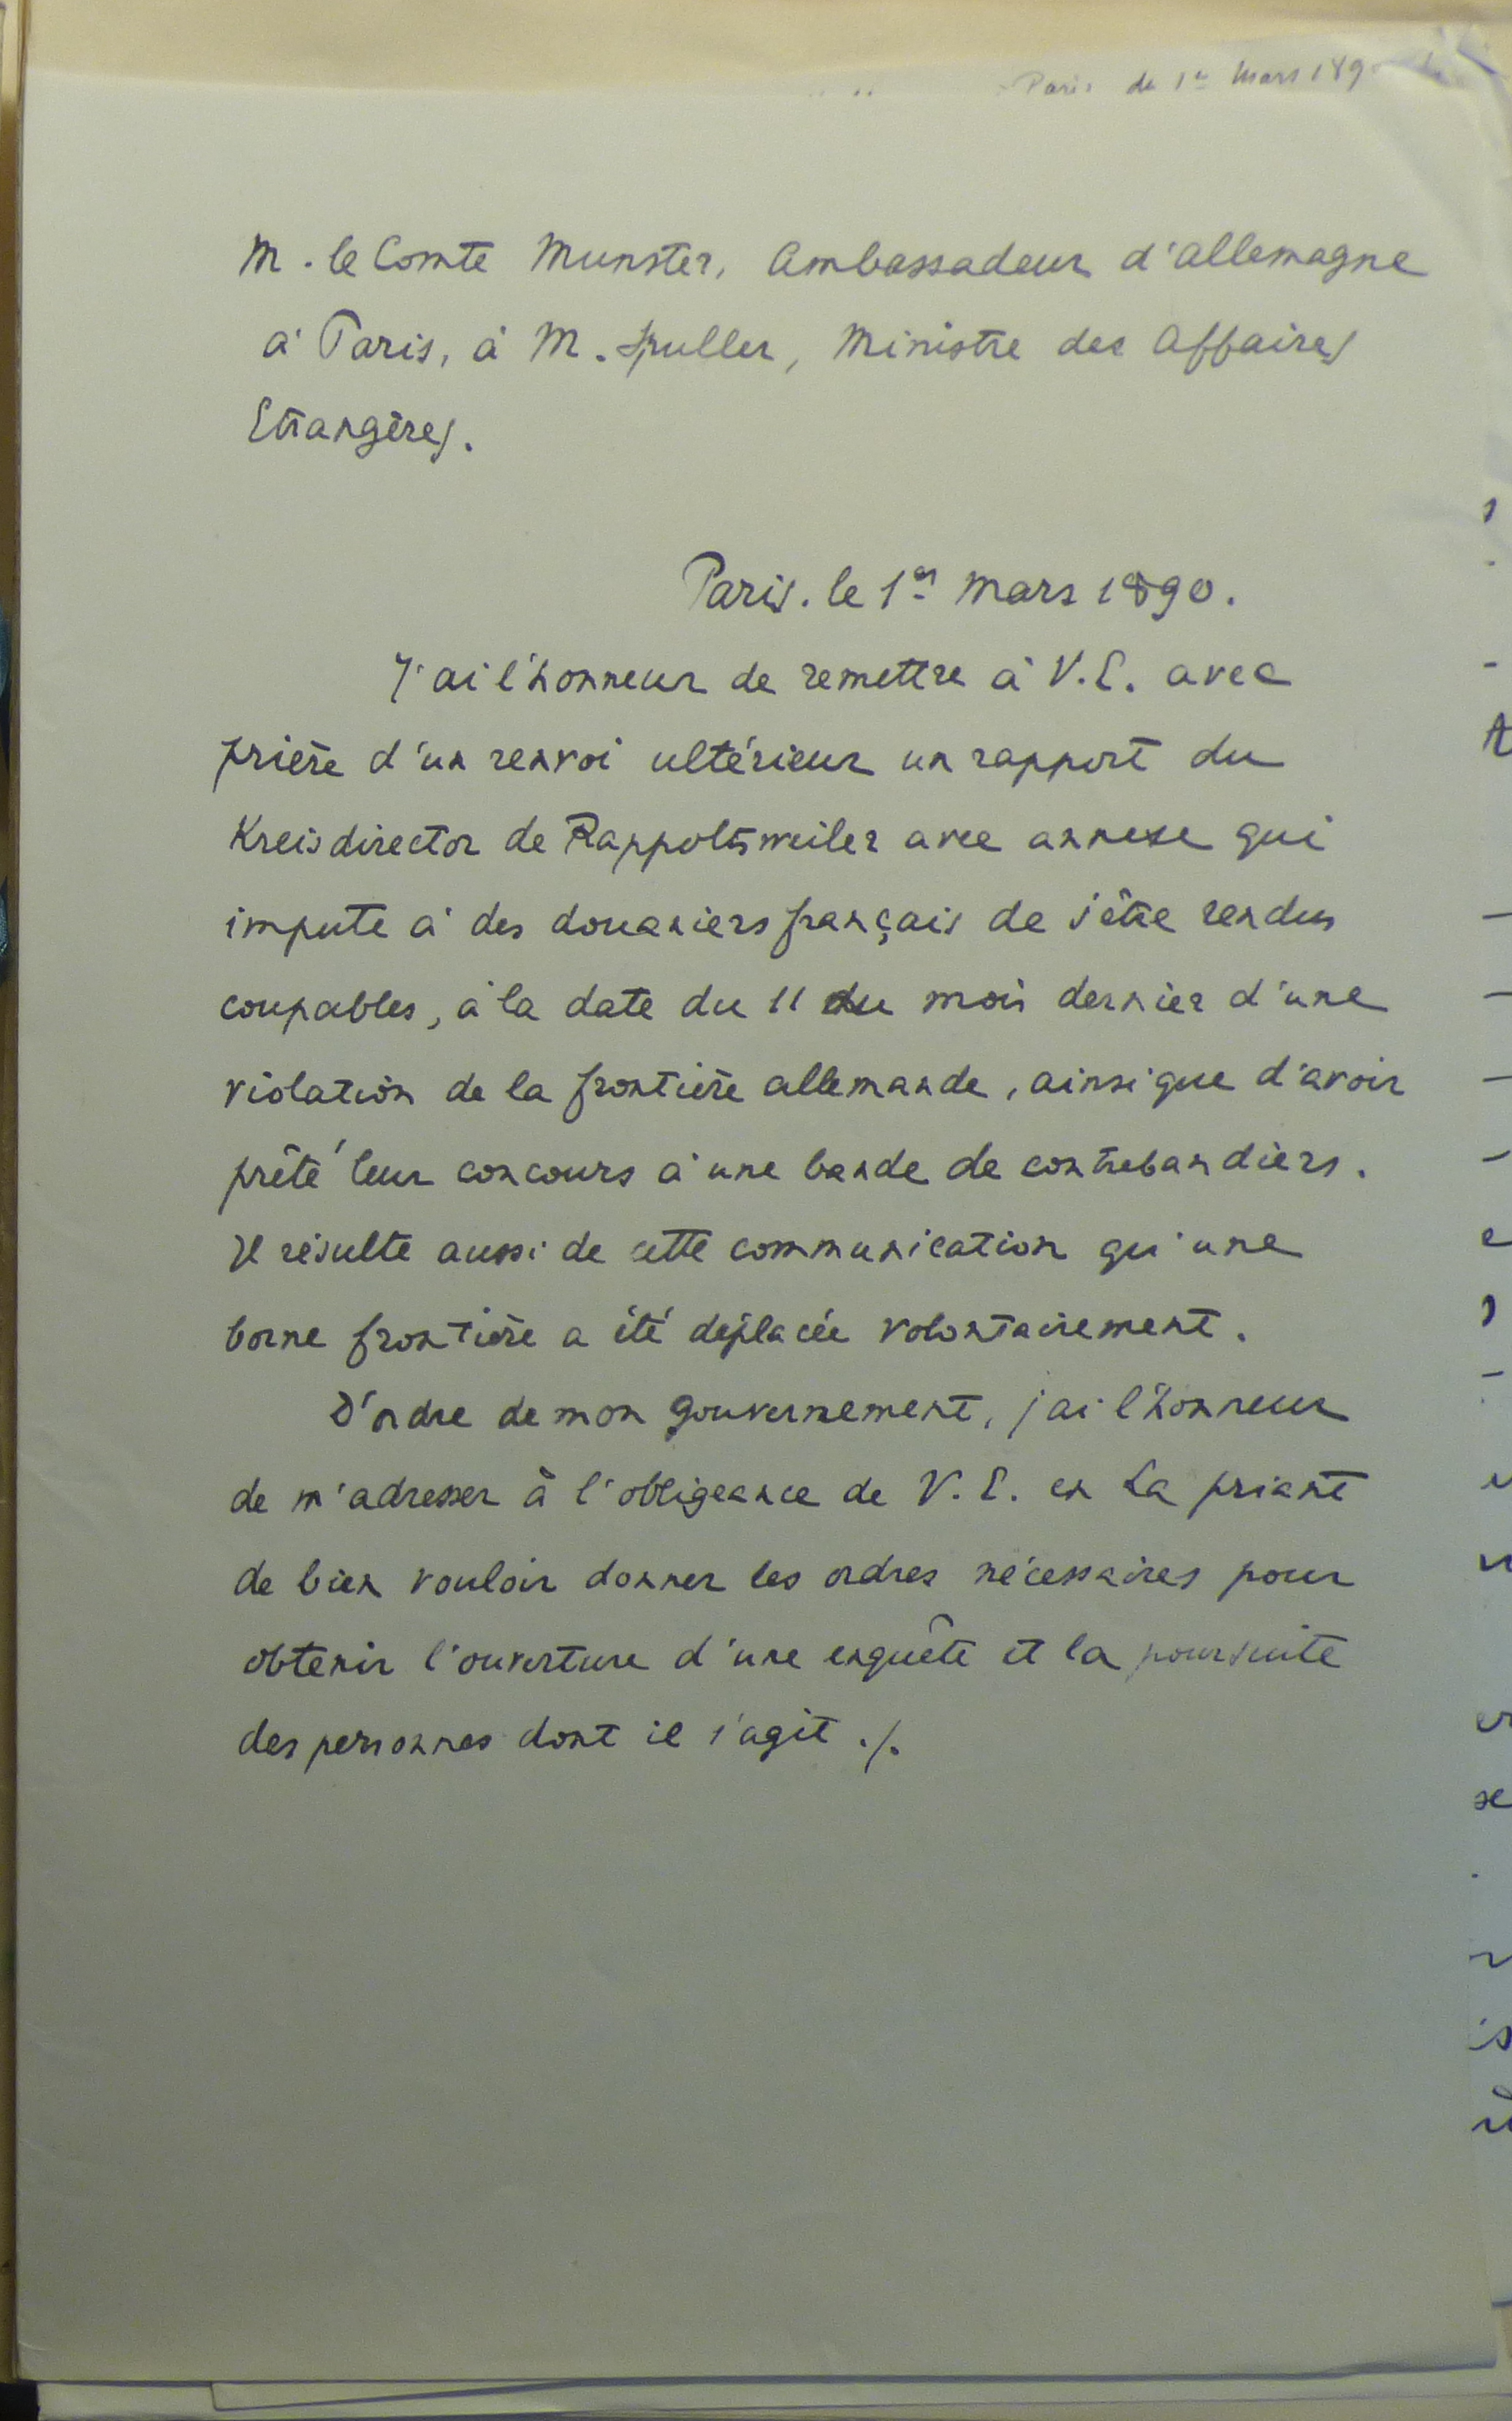 Paris du 1er Mars 1890
M. le Comte Munster, Ambassadeur d'Allemagne
à Paris, à M. Spuller, Ministre des Affaires
Etrangères.
Paris. le 1er Mars 1890.
J'ai l'honneur de remettre à V.E. avec
prière d'un renvoi ultérieur un rapport du
Kreisdirector de Rappoltsweiler avec annexe qui
impute à des douaniers français de s'être rendus
coupables, à la date du 11 du mois dernier d'une
violation de la frontière allemande, ainsi que d'avoir
prêté leur concours à une bande de contrebandiers.
Il résulte aussi de cette communication qu'une
borne frontière a été déplacée volontairement.
D'ordre de mon Gouvernement, j'ai l'honneur
de m'adresser à l'obligeance de V.E. en La priant
de bien vouloir donner les ordres nécessaires pour
obtenir l'ouverture d'une enquête et la poursuite
des personnes dont il s'agit ./.